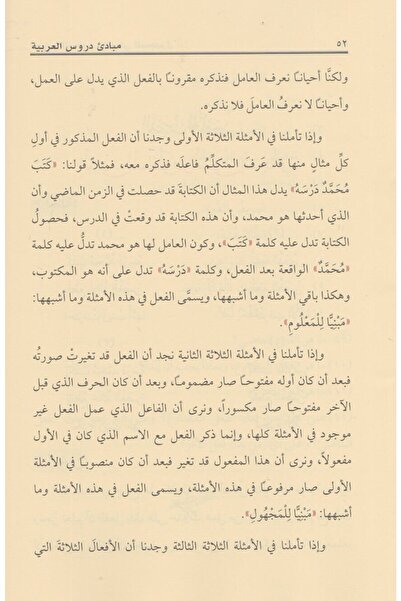 ٥٢ مبادئ دروس العربية
ولكنَّا أحيانـًا نعرف العامل فنذكره مقرونـًا بالفعل الذي يدل على العمل،
وأحيانـًا لا نعرفُ العاملَ فلا نذكره.
وإذا تأملنا في الأمثلة الثلاثة الأولى وجدنا أن الفعل المذكور في أولِ
كلِّ مثالٍ منها قد عَرفَ المتكلِّمُ فاعلَه فذكره معه، فمثلاً قولنا: «كَتَبَ
مُحَمَّدٌ دَرْسَهُ» يدل هذا المثال أن الكتابةَ قد حصلت في الزمن الماضي وأن
الذي أحدثها هو محمد، وأن هذه الكتابة قد وقعتْ في الدرس، فحصولُ
الكتابة تدل عليه كلمة «كَتَبَ»، وكون العامل لها هو محمد تدلُّ عليه كلمة
«مُحَمَّدٌ» الواقعة بعد الفعل، وكلمة «دَرْسَهُ» تدل على أنه هو المكتوب،
وهكذا باقي الأمثلة وما أشبهها، ويسمَّى الفعل في هذه الأمثلة وما أشبهها:
«مَبْنِيًّا لِلْمَعْلُومِ».
وإذا تأملنا في الأمثلة الثلاثة الثانية نجد أن الفعل قد تغيرتْ صورتُه
فبعد أن كان أوله مفتوحـًا صار مضمومـًا، وبعد أن كان الحرف الذي قبل
الآخر مفتوحـًا صار مكسوراً، ونرى أن الفاعل الذي عمل الفعل غير
موجود في الأمثلة كلها، وإنما ذكر الفعل مع الاسم الذي كان في الأول
مفعولاً، ونرى أن هذا المفعول قد تغير فبعد أن كان منصوبـًا في الأمثلة
الأولى صار مرفوعـًا في هذه الأمثلة، ويسمى الفعل في هذه الأمثلة وما
أشبهها: «مَبْنِيًّا لِلْمَجْهُولِ».
وإذا تأملنا في الأمثلة الثلاثة الثالثة وجدنا أن الأفعالَ الثلاثةَ التي